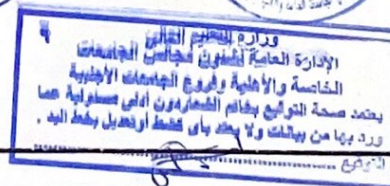 وزارة التعليم العالي
الإدارة العامة لشئون مجالس الجامعات
الخاصة والأهلية وفروع الجامعات الأجنبية
يعتمد صحة التوقيع بخاتم الشعار دون أدنى مسئولية عما
ورد بها من بيانات ولا يعتد بأى كشط أو تعديل بخط اليد .
التوقيع